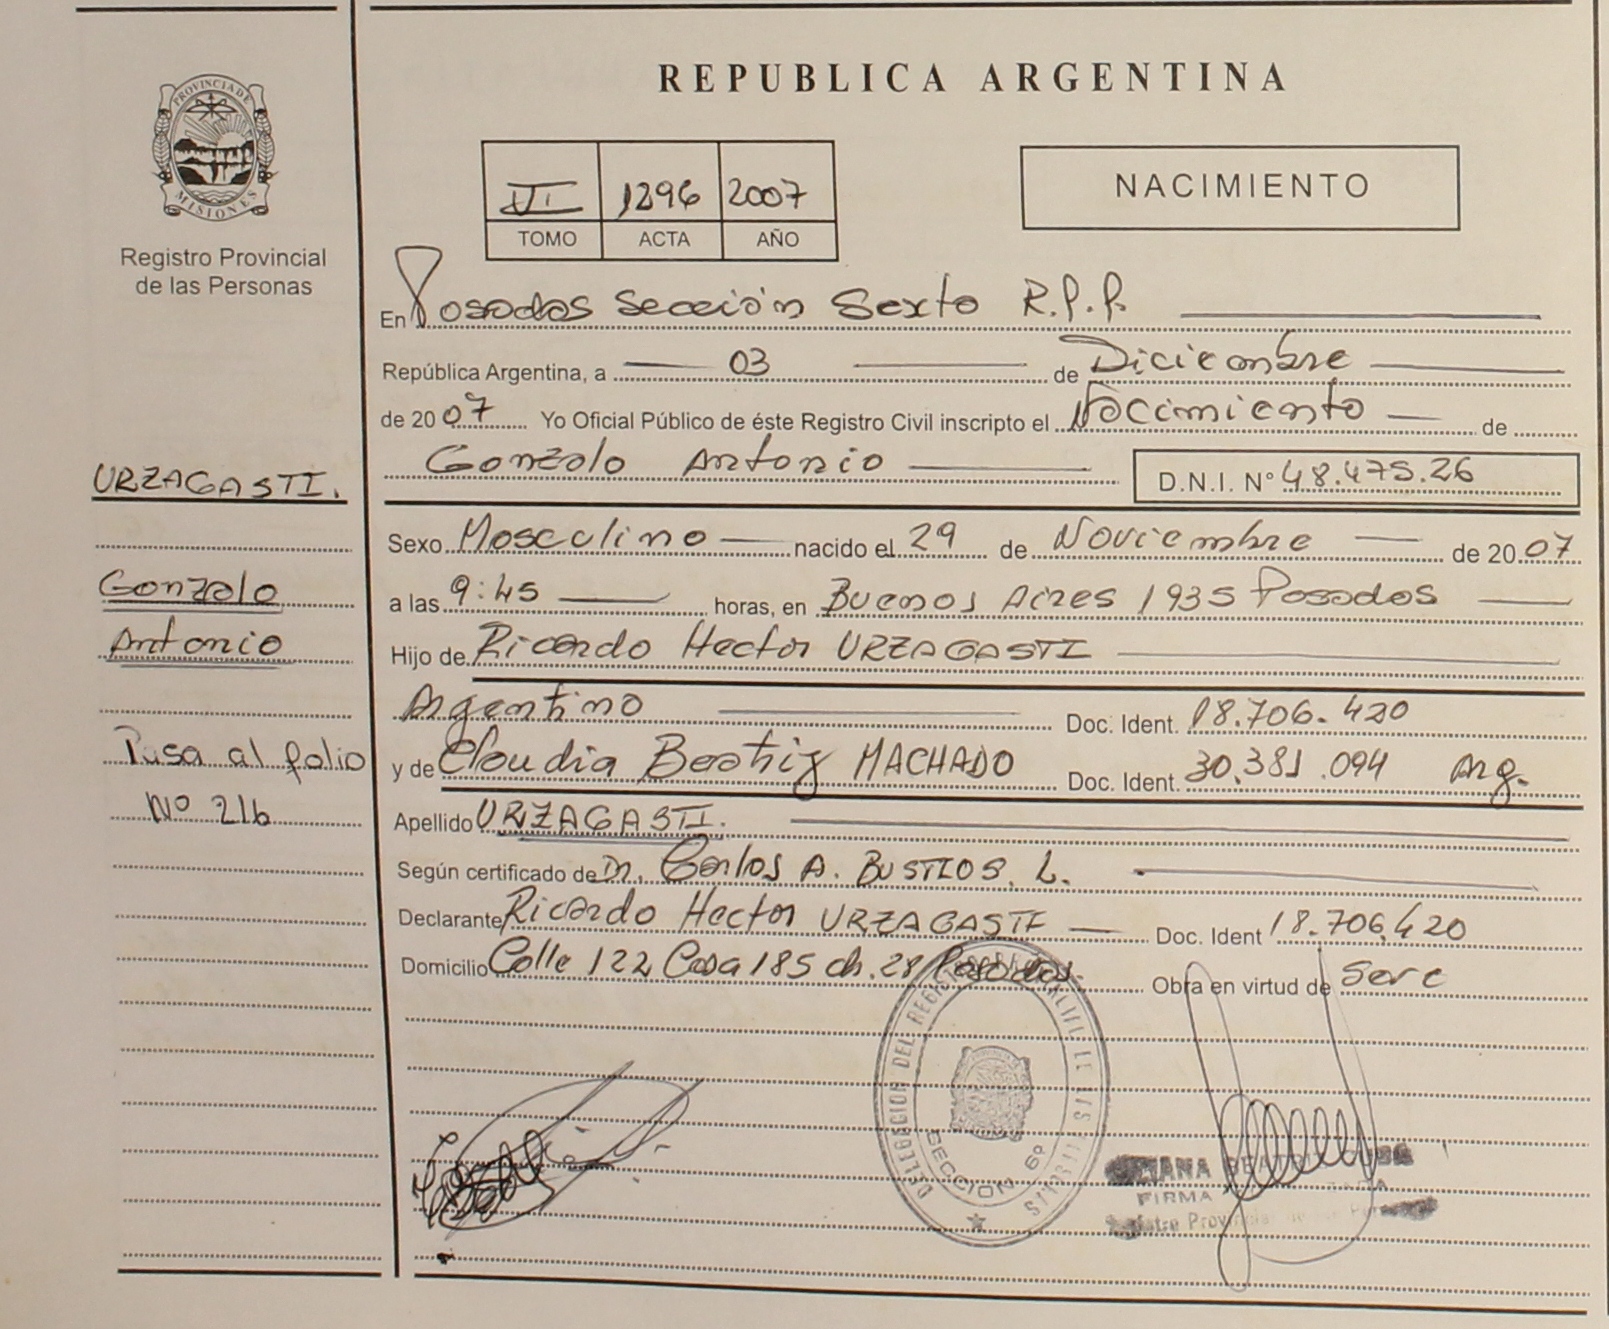 REPUBLICA ARGENTINA
PROVINCIA DE
MISIONES
Registro Provincial
de las Personas
VI 1296 2007
TOMO ACTA AÑO
NACIMIENTO
En Posadas Sección Sexta R.P.P.
República Argentina, a 03 de Diciembre
de 2007 Yo Oficial Público de éste Registro Civil inscripto el Nacimiento de
Gonzalo Antonio D.N.I. N° 48.475.26
URZAGASTI.
Sexo Masculino nacido el 29 de Noviembre de 2007
Gonzalo
a las 9:45 horas, en Buenos Aires 1935 Posadas
Antonio
Hijo de Ricardo Hector URZAGASTI
Argentino Doc. Ident. 18.706.420
Pasa al folio
y de Claudia Beatriz MACHADO Doc. Ident. 30.381.094 Arg.
Nº 216
Apellido URZAGASTI.
Según certificado de Dr. Carlos A. BUSTIOS. L.
Declarante Ricardo Hector URZAGASTI Doc. Ident 18.706.420
Domicilio Calle 122 Casa 185 ch. 28 Posadas. Obra en virtud de Ser
DELEGACION DEL REGISTRO
SECCION 6º
FIRMA